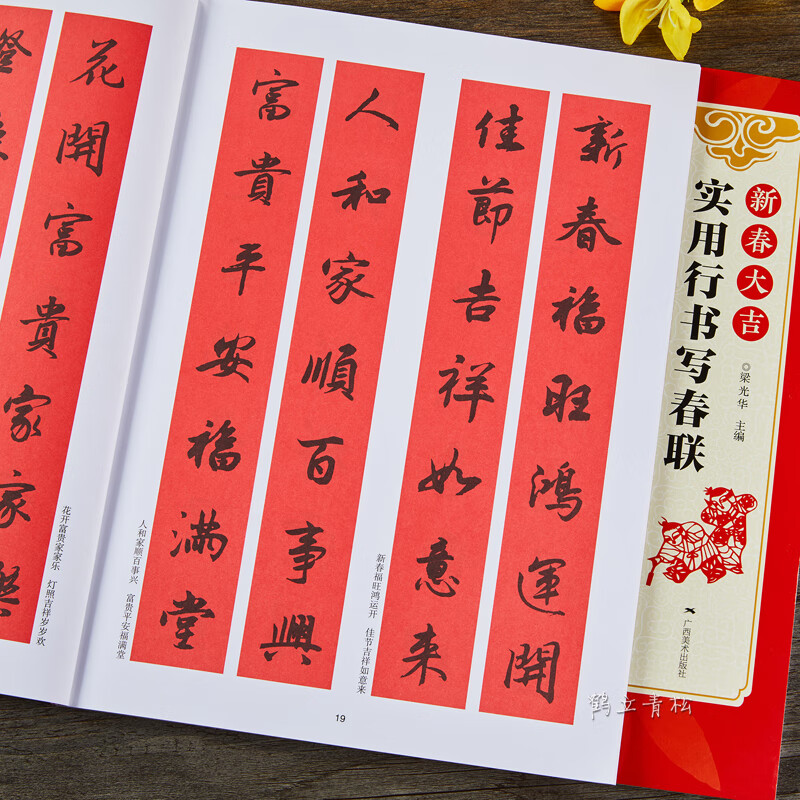 新春大吉
实用行书写春联
◎梁光华 主编
广西美术出版社
新春福旺鴻運開
佳節吉祥如意來
新春福旺鸿运开 佳节吉祥如意来
人和家順百事興
富貴平安福滿堂
人和家顺百事兴 富贵平安福满堂
19
花開富貴家家樂
花开富贵家家乐 灯照吉祥岁岁欢
鹤立青松